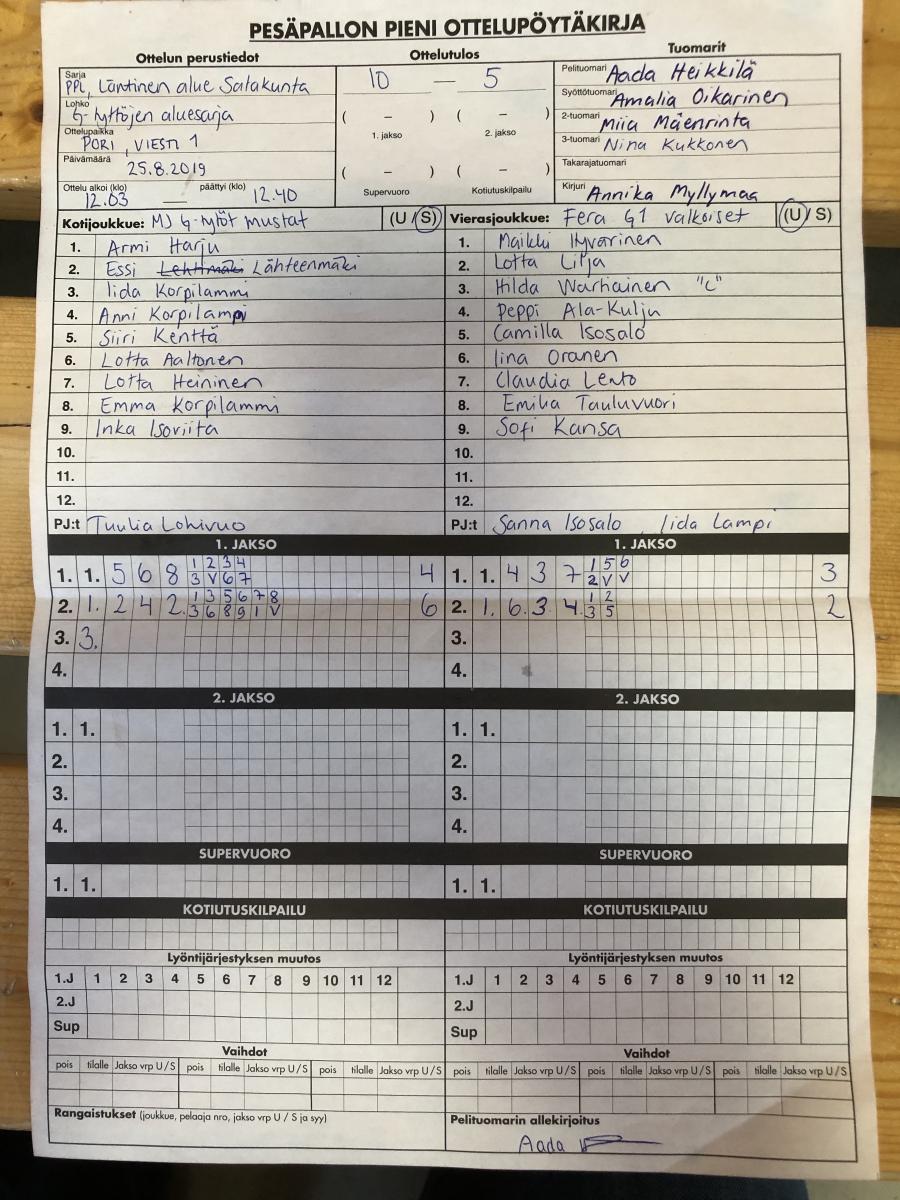 PESÄPALLON PIENI OTTELUPÖYTÄKIRJA
Ottelun perustiedot
Sarja
PPL, Läntinen alue Satakunta
Lohko
G-tyttöjen aluesarja
Ottelupaikka
PORI, VIESTI 1
Päivämäärä
25.8.2019
Ottelu alkoi (klo) päättyi (klo)
12.03 — 12.40
Ottelutulos
10 — 5
( – ) ( – )
1. jakso 2. jakso
( – ) ( – )
Supervuoro Kotiutuskilpailu
Tuomarit
Pelituomari Aada Heikkilä
Syöttötuomari Amalia Oikarinen
2-tuomari Miia Mäenrinta
3-tuomari Nina Kukkonen
Takarajatuomari
Kirjuri Annika Myllymaa
Kotijoukkue: MJ G-tytöt mustat (U / S)
1. Armi Harju
2. Essi Lehtimäki Lähteenmäki
3. Iida Korpilammi
4. Anni Korpilampi
5. Siiri Kenttä
6. Lotta Aaltonen
7. Lotta Heininen
8. Emma Korpilammi
9. Inka Isoviita
10.
11.
12.
PJ:t Tuulia Lohivuo
Vierasjoukkue: Fera G1 valkoiset (U / S)
1. Maikki Hyvärinen
2. Lotta Lilja
3. Hilda Warhainen "C"
4. Peppi Ala-Kulju
5. Camilla Isosalo
6. Iina Oranen
7. Claudia Lento
8. Emilia Tauluvuori
9. Sofi Kansa
10.
11.
12.
PJ:t Sanna Isosalo, Iida Lampi
1. JAKSO
1. 1. 5 6 8 1 2 3 4 4
3 V 6 7
2. 1. 2 4 2. 1 3 5 6 7 8 6
3 6 8 9 1 V
3. 3.
4.
1. JAKSO
1. 1. 4 3 7 1 5 6 3
2 V V
2. 1. 6. 3 4. 1 2 2
3 5
3.
4.
2. JAKSO
1. 1.
2.
3.
4.
2. JAKSO
1. 1.
2.
3.
4.
SUPERVUORO
1. 1.
SUPERVUORO
1. 1.
KOTIUTUSKILPAILU
KOTIUTUSKILPAILU
Lyöntijärjestyksen muutos
1.J 1 2 3 4 5 6 7 8 9 10 11 12
2.J
Sup
Lyöntijärjestyksen muutos
1.J 1 2 3 4 5 6 7 8 9 10 11 12
2.J
Sup
Vaihdot
pois tilalle Jakso vrp U / S pois tilalle Jakso vrp U / S pois tilalle Jakso vrp U / S
Vaihdot
pois tilalle Jakso vrp U / S pois tilalle Jakso vrp U / S pois tilalle Jakso vrp U / S
Rangaistukset (joukkue, pelaaja nro, jakso vrp U / S ja syy)
Pelituomarin allekirjoitus
Aada